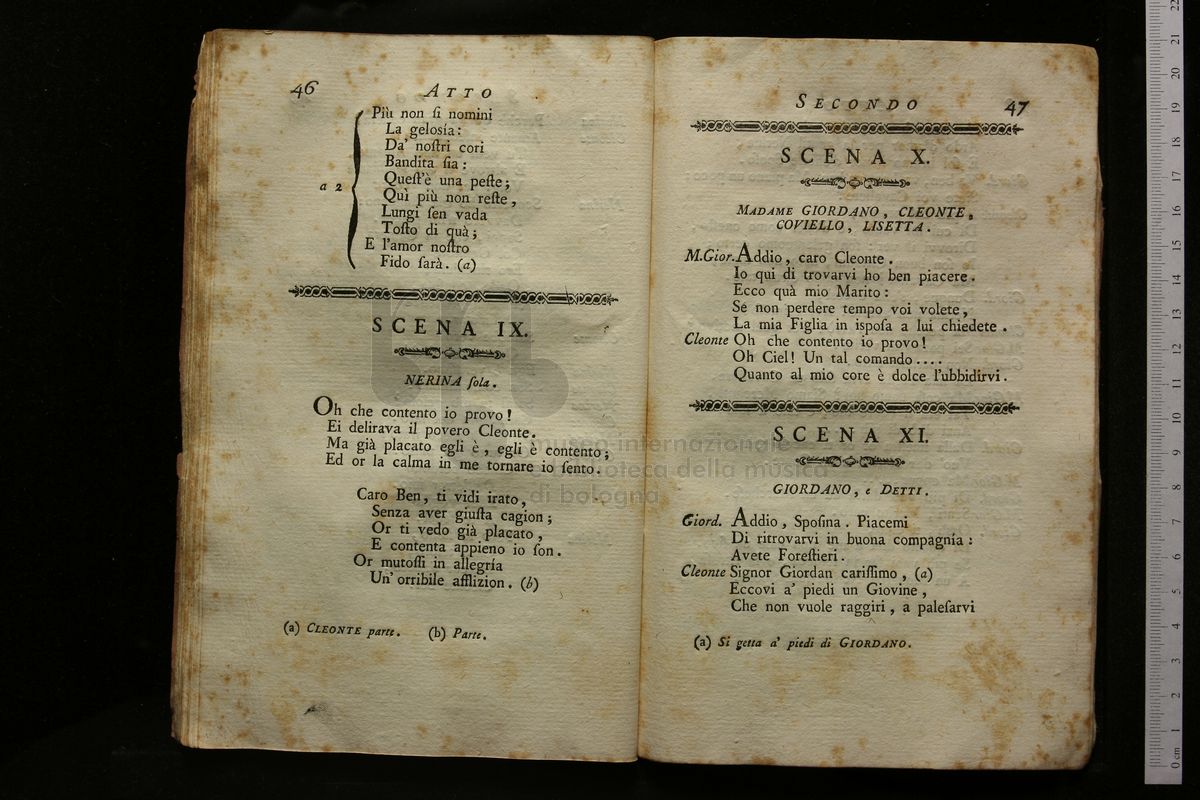 46 ATTO
Più non ſi nomini
La geloſía:
Da' noſtri cori
Bandita ſia:
Queſt'è una peſte;
a 2
Quì più non reſte,
Lungi ſen vada
Toſto di quà;
E l'amor noſtro
Fido ſarà. (a)
SCENA IX.
NERINA ſola.
Oh che contento io provo!
Ei delirava il povero Cleonte.
Ma già placato egli è, egli è contento;
Ed or la calma in me tornare io ſento.
Caro Ben, ti vidi irato,
Senza aver giuſta cagion;
Or ti vedo già placato,
E contenta appieno io ſon.
Or mutoſſi in allegría
Un' orribile afflizion. (b)
(a) CLEONTE parte. (b) Parte.
SECONDO 47
SCENA X.
MADAME GIORDANO, CLEONTE,
COVIELLO, LISETTA.
M.Gior. Addio, caro Cleonte.
Io qui di trovarvi ho ben piacere.
Ecco quà mio Marito:
Se non perdere tempo voi volete,
La mia Figlia in iſpoſa a lui chiedete.
Cleonte Oh che contento io provo!
Oh Ciel! Un tal comando....
Quanto al mio core è dolce l'ubbidirvi.
SCENA XI.
GIORDANO, e DETTI.
Giord. Addio, Spoſina. Piacemi
Di ritrovarvi in buona compagnía:
Avete Foreſtieri.
Cleonte Signor Giordan cariſſimo, (a)
Eccovi a' piedi un Giovine,
Che non vuole raggiri, a paleſarvi
(a) Si getta a' piedi di GIORDANO.
museo internazionale
e biblioteca della musica
di bologna
0 cm 1 2 3 4 5 6 7 8 9 10 11 12 13 14 15 16 17 18 19 20 21 22